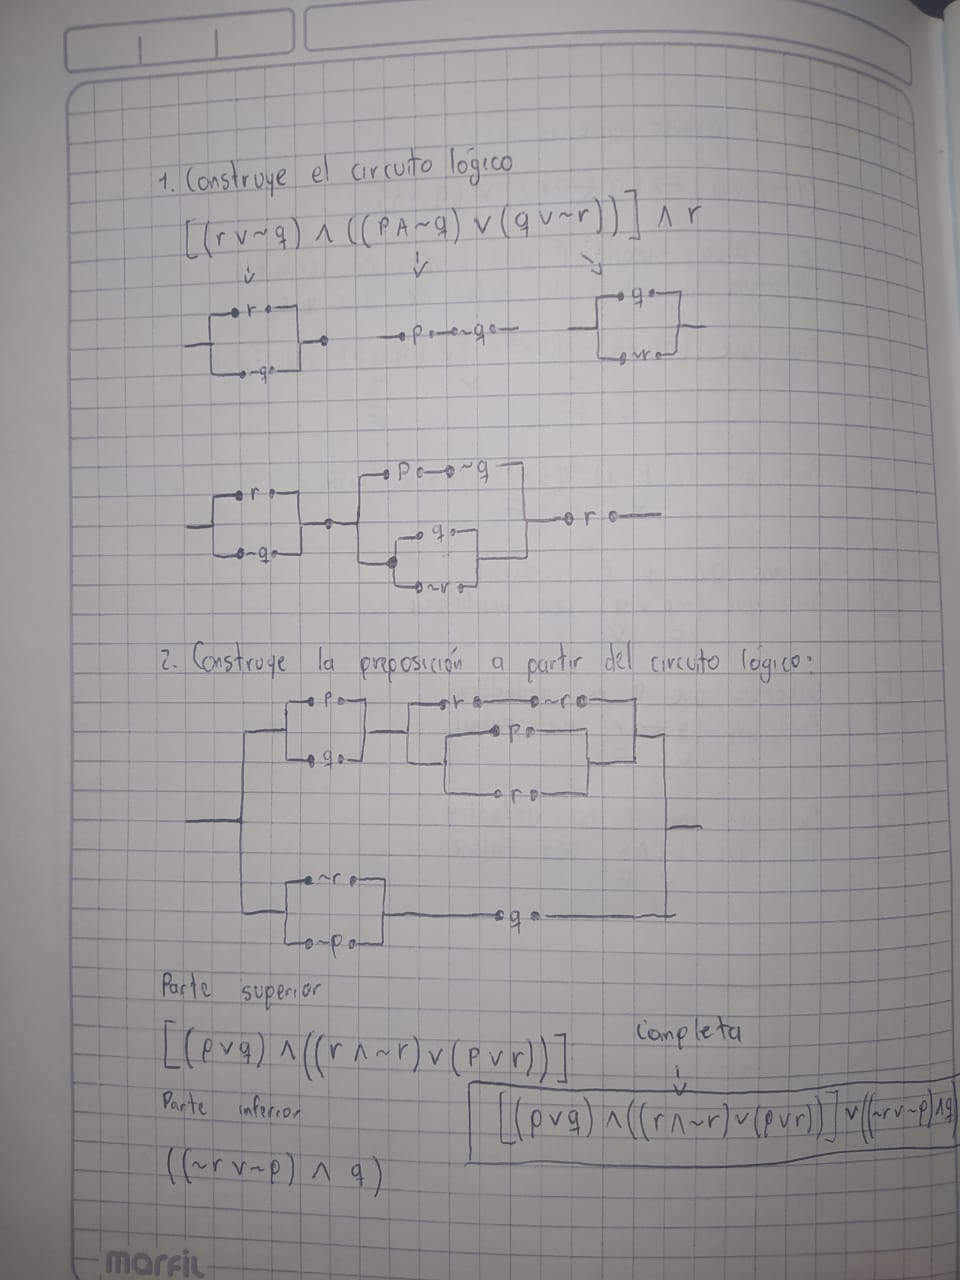 1. Construye el circuito lógico
[(r ∨ ~q) ∧ ((p ∧ ~q) ∨ (q ∨ ~r))] ∧ r
r q
p ~q
~q ~r
p ~q
r q r
~q ~r
2. Construye la preposición a partir del circuito lógico:
p r ~r
p
q
r
~r
q
~p
Parte superior
completa
[(p ∨ q) ∧ ((r ∧ ~r) ∨ (p ∨ r))]
Parte inferior
[(p ∨ q) ∧ ((r ∧ ~r) ∨ (p ∨ r))] ∨ ((~r ∨ ~p) ∧ q)
((~r ∨ ~p) ∧ q)
marfil